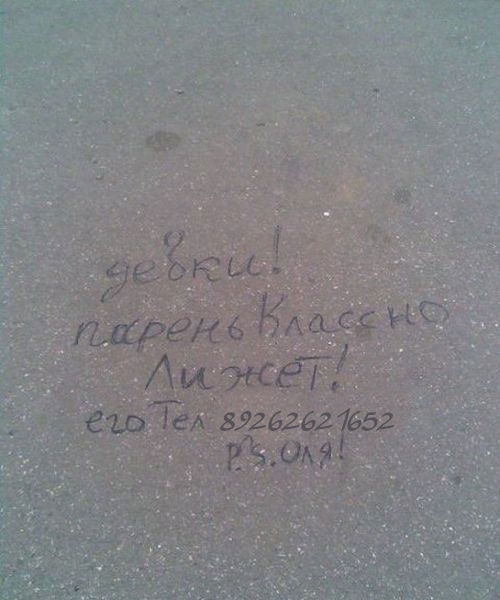 девки!
парень Классно
Лижет!
его Тел 89262621652
P.S. Оля!